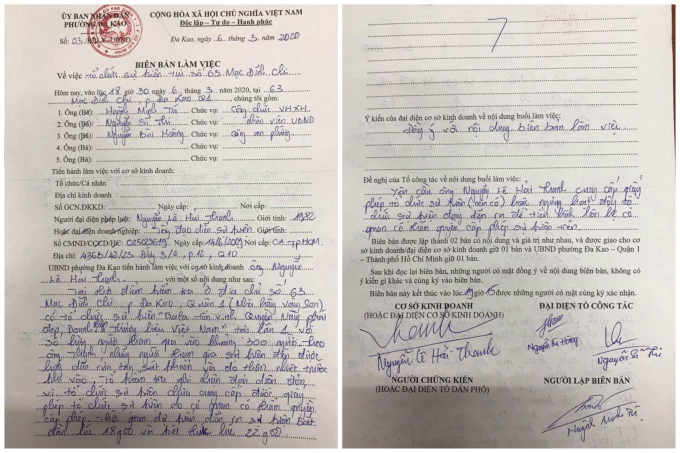 ỦY BAN NHÂN DÂN
PHƯỜNG ĐA KAO
Số: 03/BB-UBND
CỘNG HÒA XÃ HỘI CHỦ NGHĨA VIỆT NAM
Độc lập – Tự do – Hạnh phúc
Đa Kao, ngày 6 tháng 3 năm 2020
BIÊN BẢN LÀM VIỆC
Về việc tổ chức sự kiện tại số 63 Mạc Đĩnh Chi
Hôm nay, vào lúc 18 giờ 30 ngày 6, tháng 3 năm 2020, tại 63
Mạc Đĩnh Chi, p Đa Kao Q1, chúng tôi gồm:
1. Ông (Bà): Huỳnh Minh Tú Chức vụ: Công chức VHXH
2. Ông (Bà): Nguyễn Sĩ Thi Chức vụ: nhân viên UBND
3. Ông (Bà): Nguyễn Bùi Hoàng Chức vụ: Công an phường
4. Ông (Bà): Chức vụ:
5. Ông (Bà): Chức vụ:
Tiến hành làm việc với cơ sở kinh doanh:
Tổ chức/Cá nhân
Địa chỉ kinh doanh
Số GCNĐKKD: Ngày cấp: Nơi cấp:
Người đại diện pháp luật: Nguyễn Lê Hải Thanh Giới tính: 1982
Hoặc đại diện doanh nghiệp: đạo diễn sự kiện Giới tính:
Số CMND/CCCD/HC: Ngày cấp: 14/6/2009 Nơi cấp: CA TpHCM
Địa chỉ: p.12, Q10
UBND phường Đa Kao tiến hành làm việc với cơ sở kinh doanh ông Nguyễn
Lê Hải Thanh với một số nội dung như sau:
Tại thời điểm kiểm tra ở địa chỉ số 63
Mạc Đĩnh Chi, p Đa Kao, Quận 1 (Nhà hàng Vàng Son)
có tổ chức sự kiện "Gala Tôn vinh Quyền Năng phái
đẹp Doanh nhân Thương hiệu Việt Nam" lần 1 với
số lượng người tham gia vào khoảng 300 người. Theo
ông Thanh những người tham gia sự kiện đều được
hướng dẫn rửa tay sát khuẩn và đo thân nhiệt trước
khi vào. Tổ kiểm tra ghi nhận đại diện đơn
vị tổ chức sự kiện chưa cung cấp được giấy
phép tổ chức sự kiện do cơ quan có thẩm quyền
cấp phép. Thời gian dự kiến diễn ra sự kiện bắt
đầu lúc 18g00 và kết thúc lúc 22g00
Ý kiến của đại diện cơ sở kinh doanh về nội dung buổi làm việc:
Đồng ý với nội dung biên bản làm việc
Đề nghị của Tổ công tác về nội dung buổi làm việc:
Yêu cầu ông Nguyễn Lê Hải Thanh cung cấp giấy
phép tổ chức sự kiện (nếu có) hoặc ngừng hoạt động tổ
chức sự kiện đang diễn ra để tiến hành liên hệ cơ
quan có thẩm quyền cấp phép sự kiện trên.
Biên bản được lập thành 02 bản có nội dung và giá trị như nhau, và được giao cho cơ
sở kinh doanh/đại diện cơ sở kinh doanh giữ 01 bản và UBND phường Đa Kao – Quận 1
– Thành phố Hồ Chí Minh giữ 01 bản.
Sau khi đọc lại biên bản, những người có mặt đồng ý về nội dung biên bản, không có
ý kiến gì khác và cùng ký vào biên bản.
Biên bản này kết thúc vào lúc 19 giờ 15 được những người có mặt cùng xác nhận.
CƠ SỞ KINH DOANH
(HOẶC ĐẠI DIỆN CƠ SỞ KINH DOANH)
ĐẠI DIỆN TỔ CÔNG TÁC
Thanh
Nguyễn Lê Hải Thanh
Nguyễn Bùi Hoàng
Nguyễn Sĩ Thi
NGƯỜI CHỨNG KIẾN
(HOẶC ĐẠI DIỆN TỔ DÂN PHỐ)
NGƯỜI LẬP BIÊN BẢN
Huỳnh Minh Tú